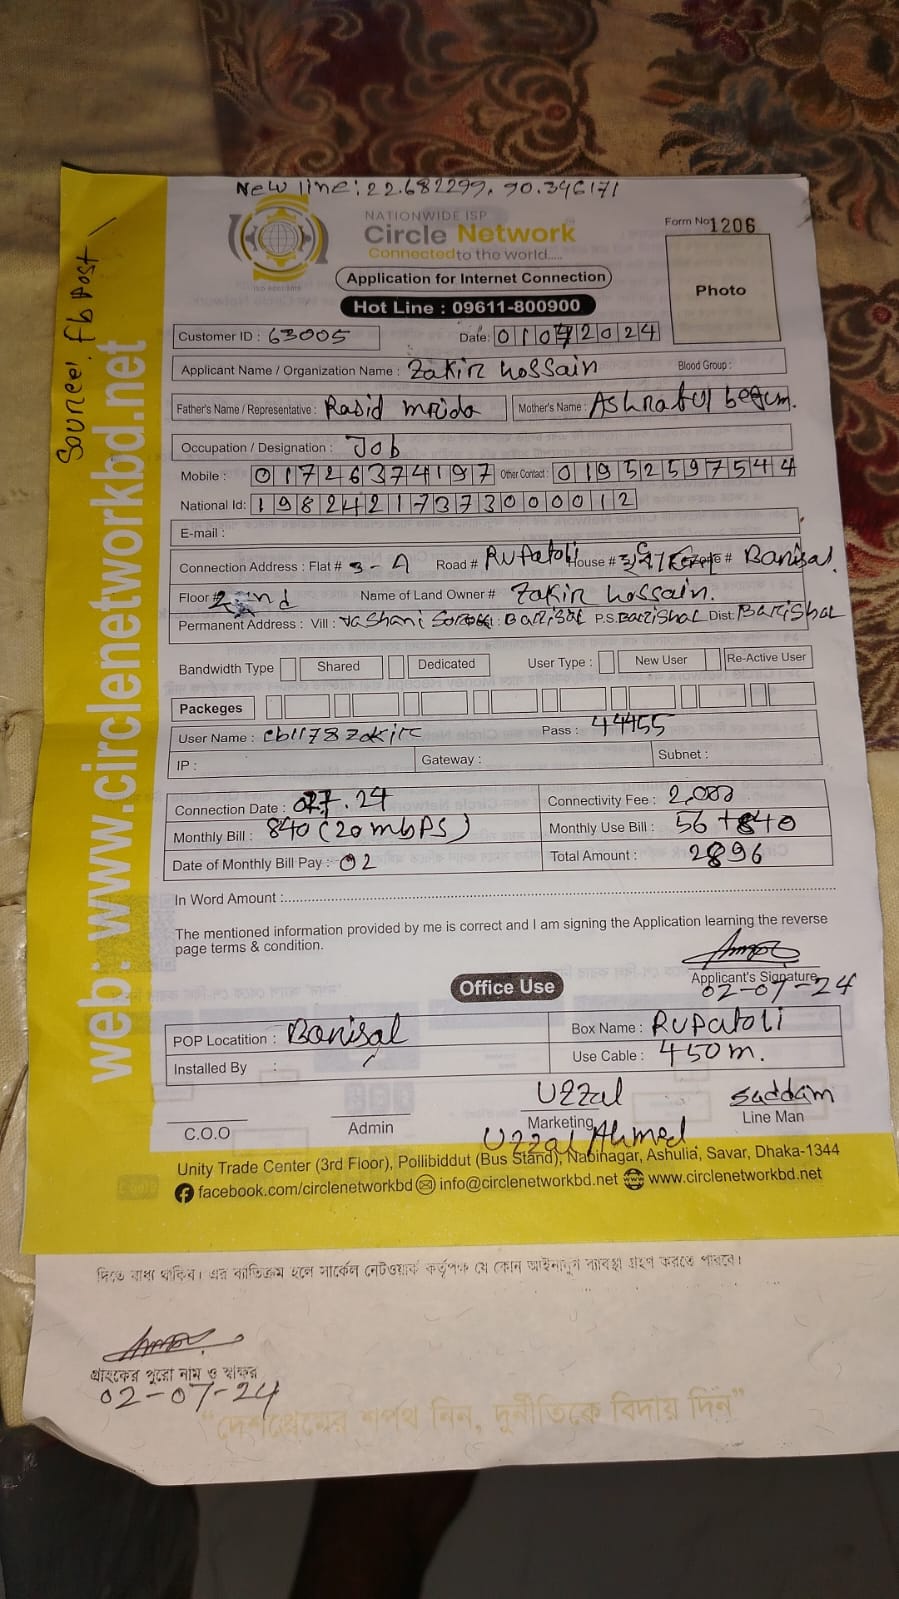 New line: 22.682299, 90.346171
NATIONWIDE ISP
Circle Network
Connected to the world.....
Form No 1206
Application for Internet Connection
Photo
Hot Line : 09611-800900
Source: Fb Post
web: www.circlenetworkbd.net
Customer ID : 63005 Date: 2024
Applicant Name / Organization Name : Zakir Hossain Blood Group :
Father's Name / Representative : Rasid mrida Mother's Name : begum.
Occupation / Designation : Job
Mobile : 01726374197 Other Contact : 01952597544
National Id: 19824217373000012
E-mail :
Connection Address : Flat # 3-A Road # Rupatoli House # Barisal.
Floor # 2nd Name of Land Owner # Zakir Hossain.
Permanent Address : Vill : Barisal P.S. Barishal Dist: Barishal
Bandwidth Type Shared Dedicated User Type : New User Re-Active User
Packeges
User Name : cb1178zakir Pass : 44455
IP : Gateway : Subnet :
Connection Date : .24 Connectivity Fee : 2,000
Monthly Bill : 840 (20 mbps) Monthly Use Bill : 56 + 840
Date of Monthly Bill Pay : 02 Total Amount : 2896
In Word Amount :
The mentioned information provided by me is correct and I am signing the Application learning the reverse
page terms & condition.
Applicant's Signature
02-07-24
Office Use
POP Locatition : Barisal Box Name : Rupatoli
Installed By : Use Cable : 450 m.
Uzzal Saddam
C.O.O Admin Marketing Line Man
Uzzal Ahmed
Unity Trade Center (3rd Floor), Pollibiddut (Bus Stand), Nabinagar, Ashulia, Savar, Dhaka-1344
facebook.com/circlenetworkbd info@circlenetworkbd.net www.circlenetworkbd.net
দিতে বাধ্য থাকিব। এর ব্যতিক্রম হলে সার্কেল নেটওয়ার্ক কর্তৃপক্ষ যে কোন আইনানুগ ব্যবস্থা গ্রহণ করতে পারবে।
গ্রাহকের পুরো নাম ও স্বাক্ষর
02-07-24
"দেশপ্রেমের শপথ নিন, দুর্নীতিকে বিদায় দিন"